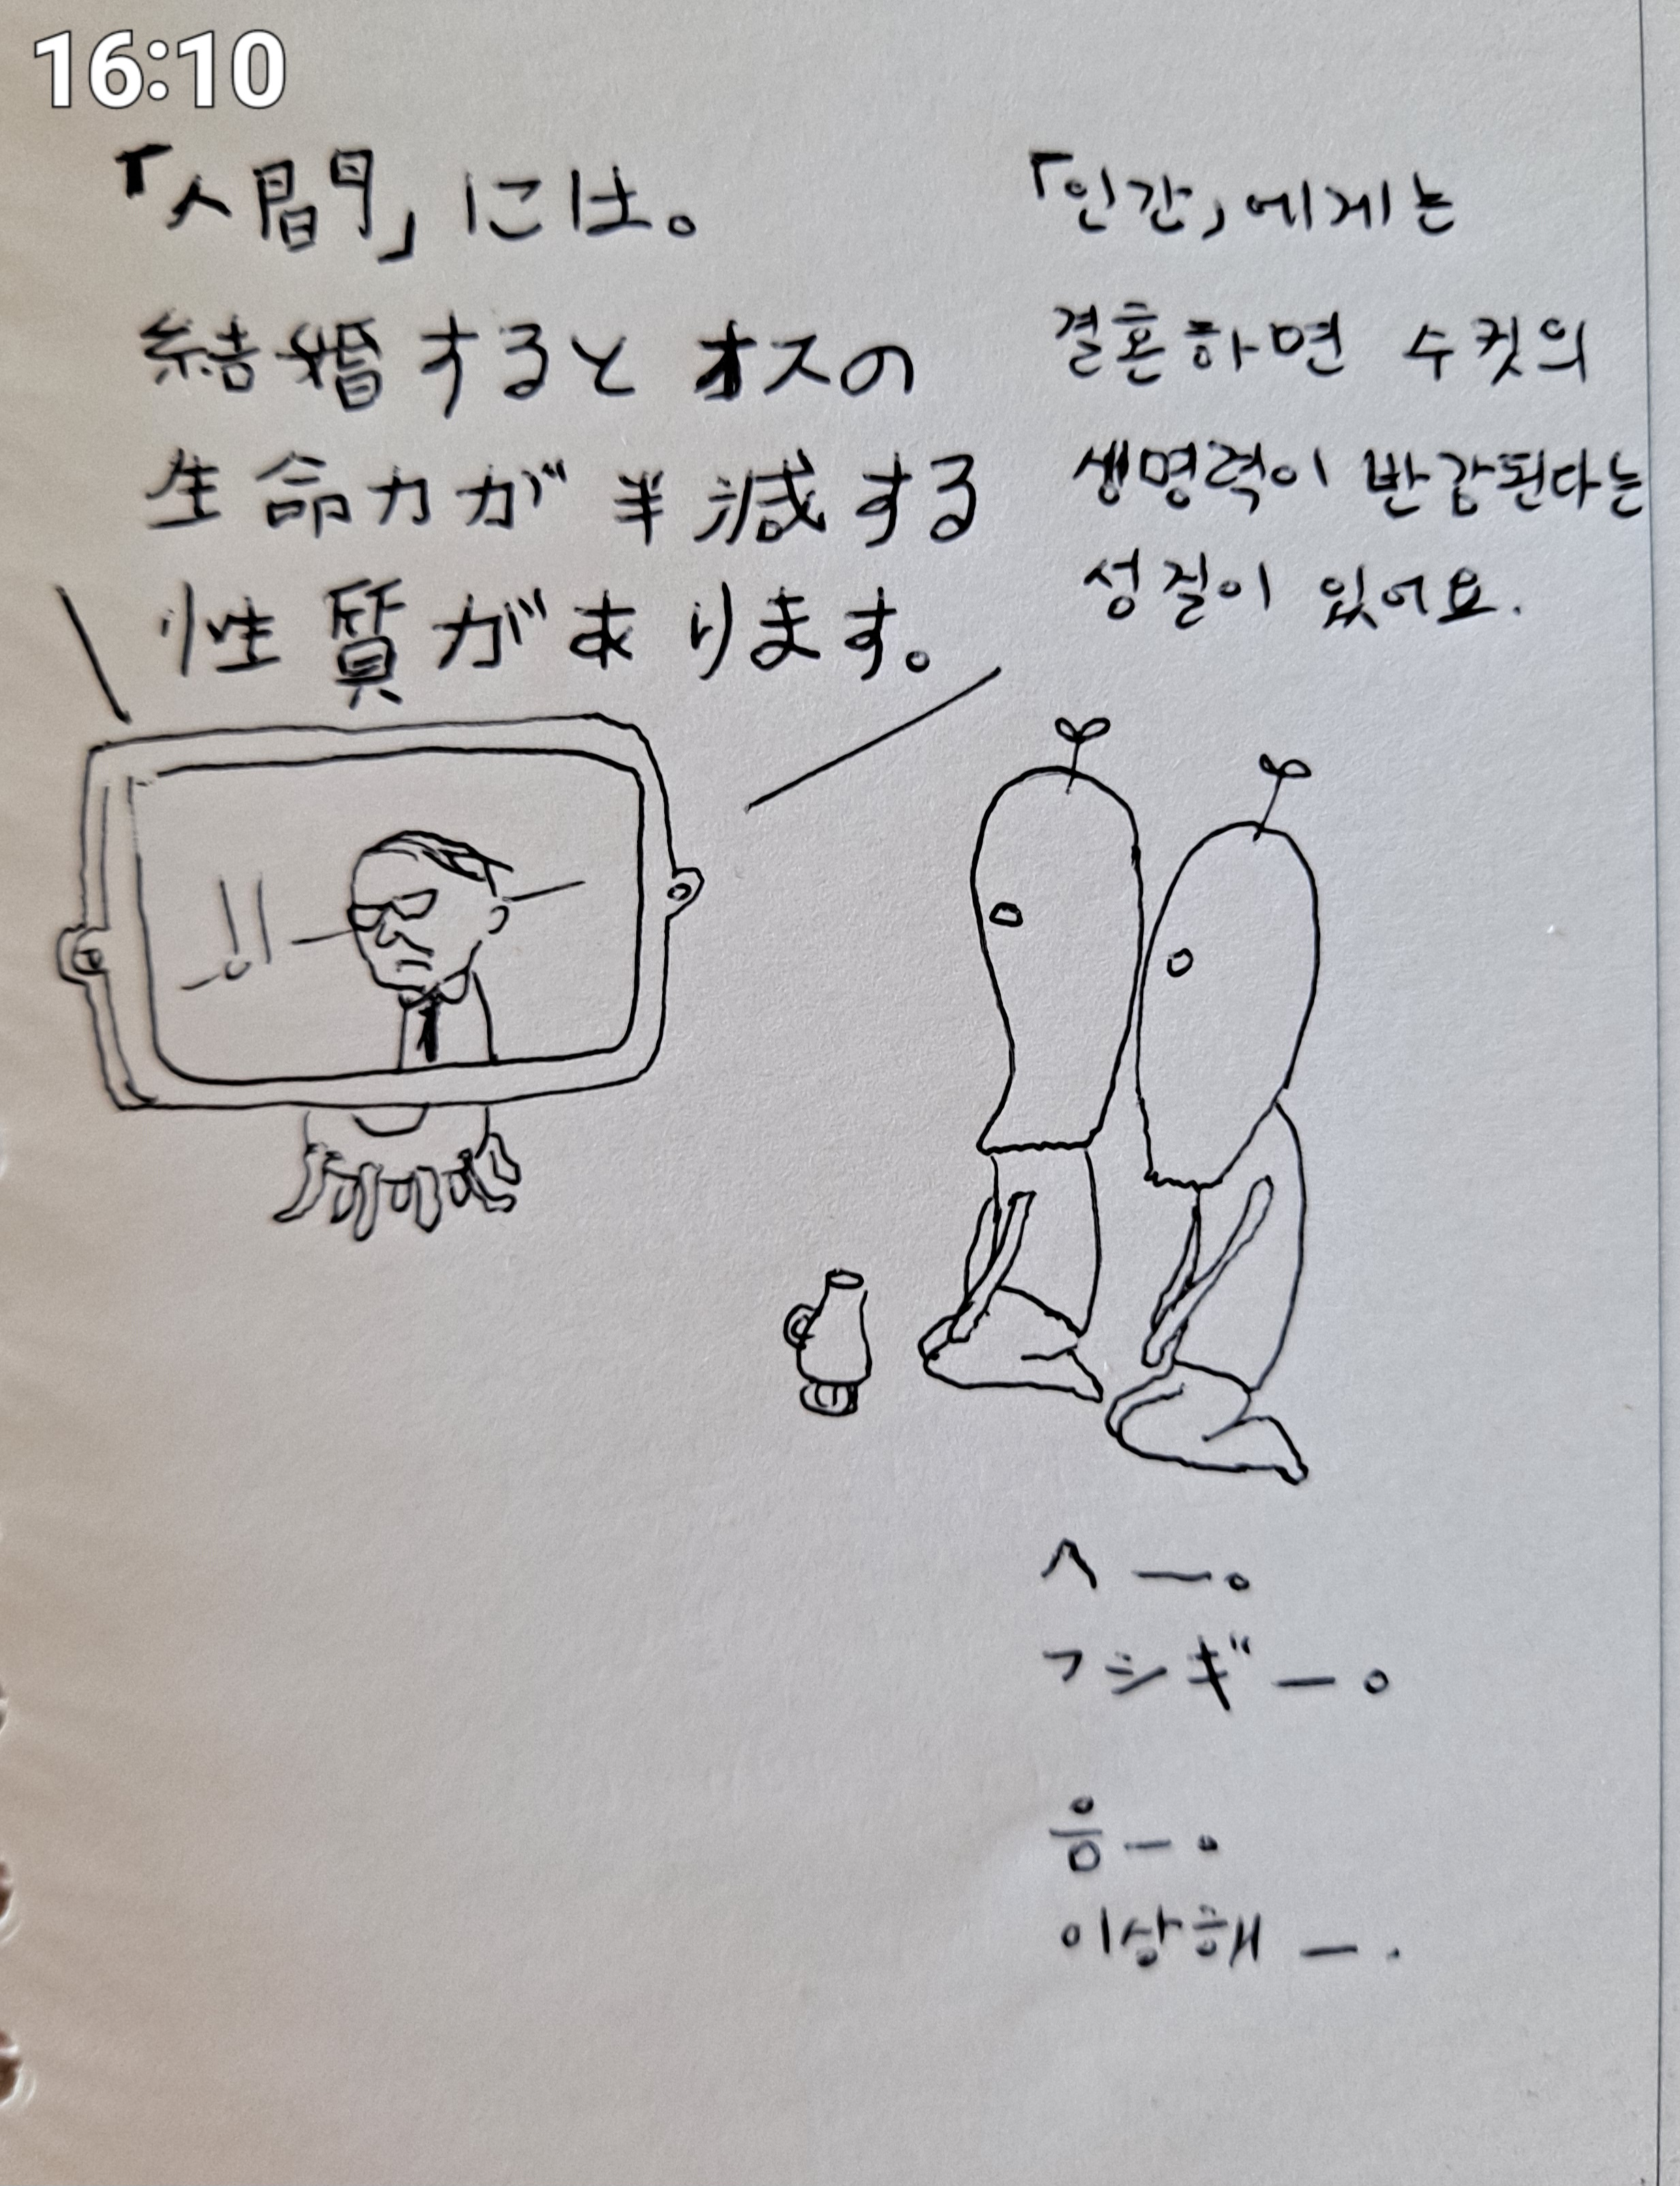 16:10
「人間」には。
結婚するとオスの
生命力が半減する
性質があります。
「인간」에게는
결혼하면 수컷의
생명력이 반감된다는
성질이 있어요.
!!
へー。
フシギー。
음ー。
이상해ー.